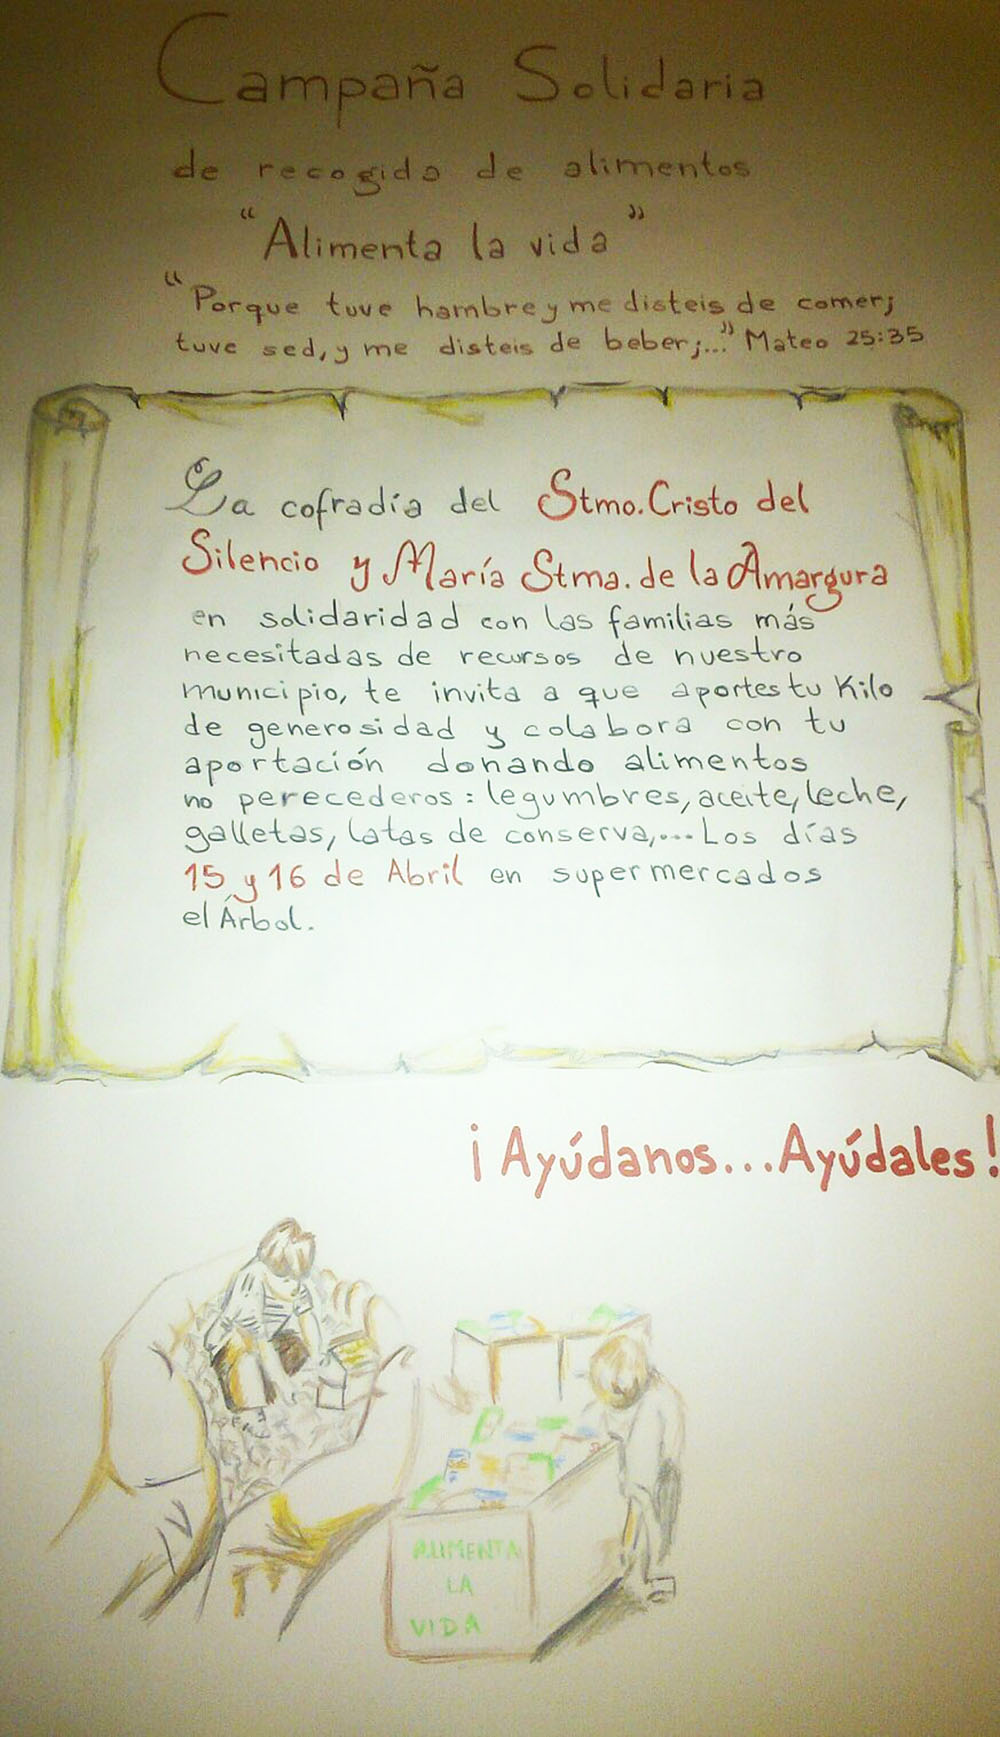 Campaña Solidaria
de recogida de alimentos
"Alimenta la vida"
"Porque tuve hambre y me disteis de comer;
tuve sed, y me disteis de beber;..." Mateo 25:35
La cofradía del Stmo. Cristo del
Silencio y María Stma. de la Amargura
en solidaridad con las familias más
necesitadas de recursos de nuestro
municipio, te invita a que aportes tu Kilo
de generosidad y colabora con tu
aportación donando alimentos
no perecederos: legumbres, aceite, leche,
galletas, latas de conserva,... Los días
15 y 16 de Abril en supermercados
el Árbol.
¡Ayúdanos...Ayúdales!
ALIMENTA
LA
VIDA